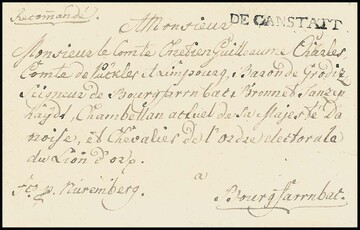 Recomandé
A Monsieur
DE CANSTATT
Monsieur le Comte Chretien Guillaume Charles
Comte de Puckler & Limpourg, Baron de Groditz
Seigneur de Bourgfarrnbat: Bronnet Tanzen
haydt, Chambellan actuel de Sa Majesté Da
noise, et Chevalier de l'ordre electorale
du Lion d'or p.
frco p. Nüremberg.
a
Bourgfarrnbat.